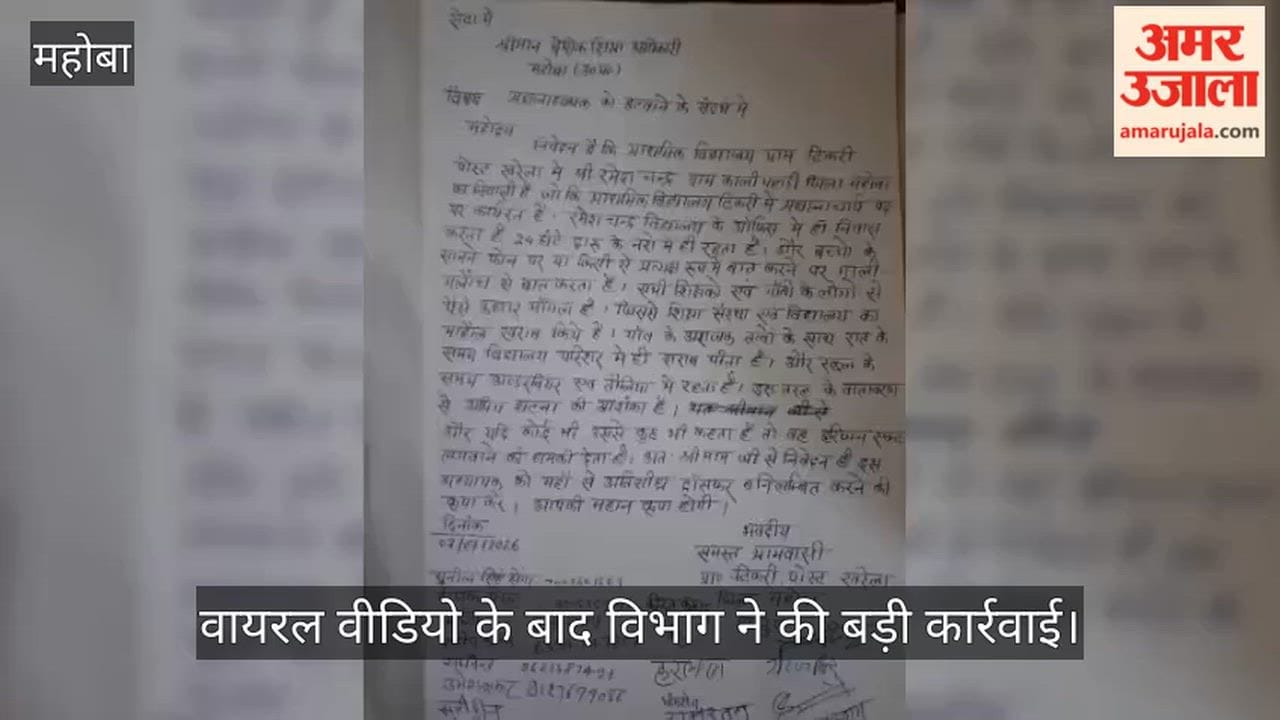 महोबा
अमर
उजाला
amarujala.com
सेवा में
श्रीमान बेसिक शिक्षा अधिकारी
महोबा (उ०प्र०)
विषय प्रधानाध्यापक को हटवाने के संदर्भ में
महोदय
निवेदन है कि प्राथमिक विद्यालय ग्राम टिकरी
पोस्ट खरेला में श्री रमेश चन्द्र ग्राम काली पहाड़ी जिला महोबा
का निवासी है जो कि प्राथमिक विद्यालय टिकरी में प्रधानाचार्य पद
पर कार्यरत है। रमेश चन्द्र विद्यालय के ऑफिस में ही निवास
करता है 24 घंटे दारू के नशे में ही रहता है। और बच्चो के
सामने फोन पर या किसी से प्रत्यक्ष रूप में बात करने पर गाली
गलौच से बात करता है। सभी शिक्षको एवं गाँव के लोगो से
पैसे उधार माँगता है। जिससे शिक्षा संस्था एवं विद्यालय का
माहौल खराब किये है। गाँव के अराजक तत्वों के साथ रात के
समय विद्यालय परिसर में ही शराब पीता है। और स्कूल के
समय अण्डरवियर एवं तौलिया में रहता है। इस तरह के वातावरण
से अप्रिय घटना की आशंका है।
और यदि कोई भी उससे कुछ भी कहता है तो वह हरिजन एक्ट
लगवाने की धमकी देता है। अतः श्रीमान जी से निवेदन है इस
अध्यापक को यहाँ से अतिशीघ्र ट्रांसफर व निलम्बित करने की
कृपा करें। आपकी महान कृपा होगी।
दिनांक
भवदीय
समस्त ग्रामवासी
ग्रा० टिकरी पोस्ट खरेला
वायरल वीडियो के बाद विभाग ने की बड़ी कार्रवाई।